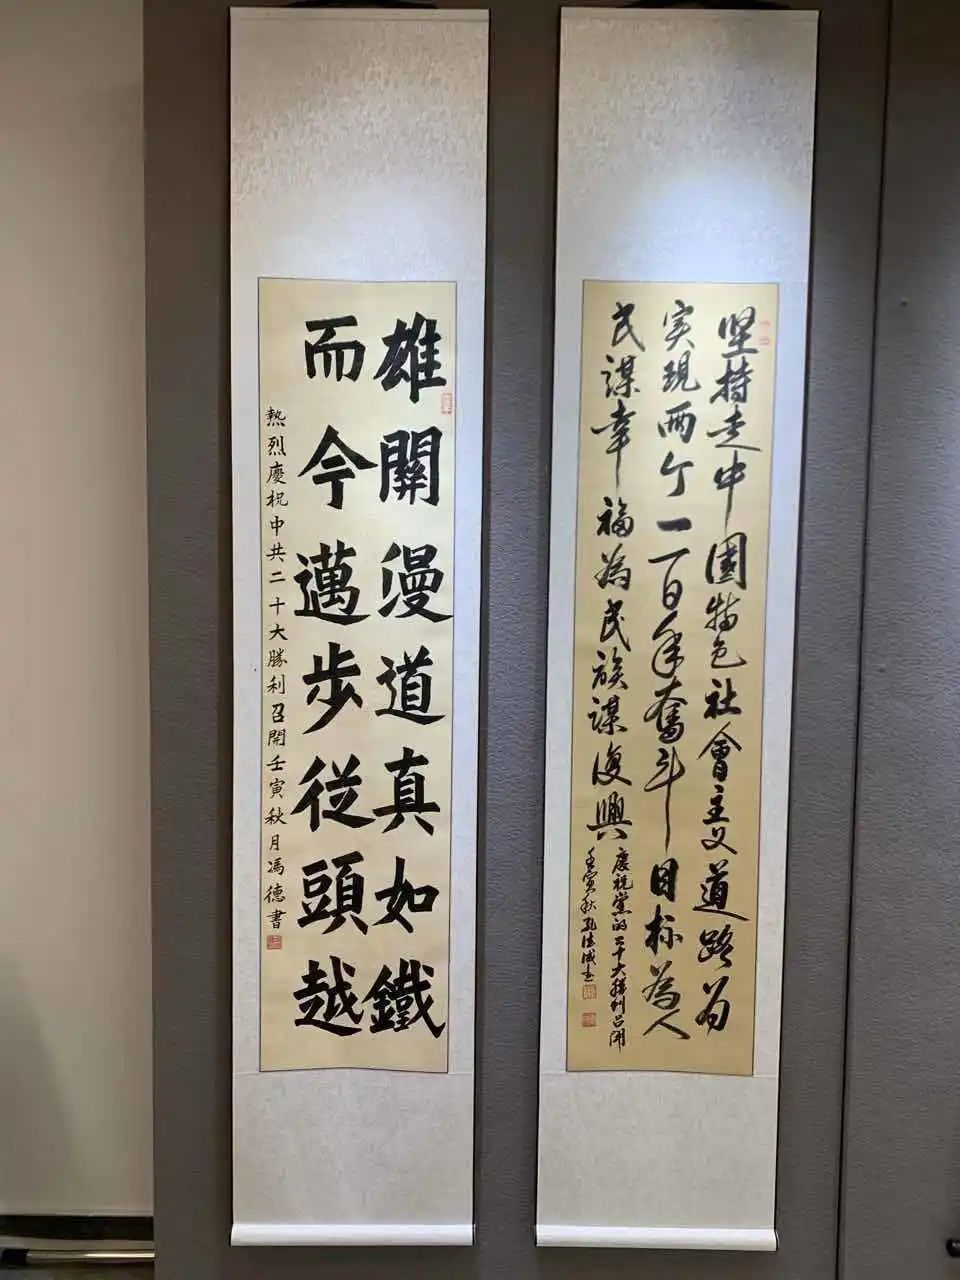 坚持走中國特色社會主义道路为
实現两个一百年奮斗目标為人
民謀幸福為民族謀復興
慶祝黨的二十大勝利召開
壬寅秋孔法成书
雄關漫道真如鐵
而今邁步從頭越
熱烈慶祝中共二十大勝利召開壬寅秋月馮德書